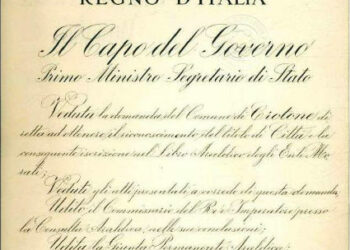 REGNO D'ITALIA
Il Capo del Governo
Primo Ministro Segretario di Stato
Veduta la domanda del Comune di Crotone di
retta ad ottenere il riconoscimento del titolo di Città e la
conseguente iscrizione nel Libro Araldico degli Enti Mo
rali;
Veduti gli atti presentati a corredo di questa domanda,
Udito il Commissario del Re e Imperatore presso
la Consulta Araldica, nelle sue conclusioni;
Udita la Giunta Permanente Araldica